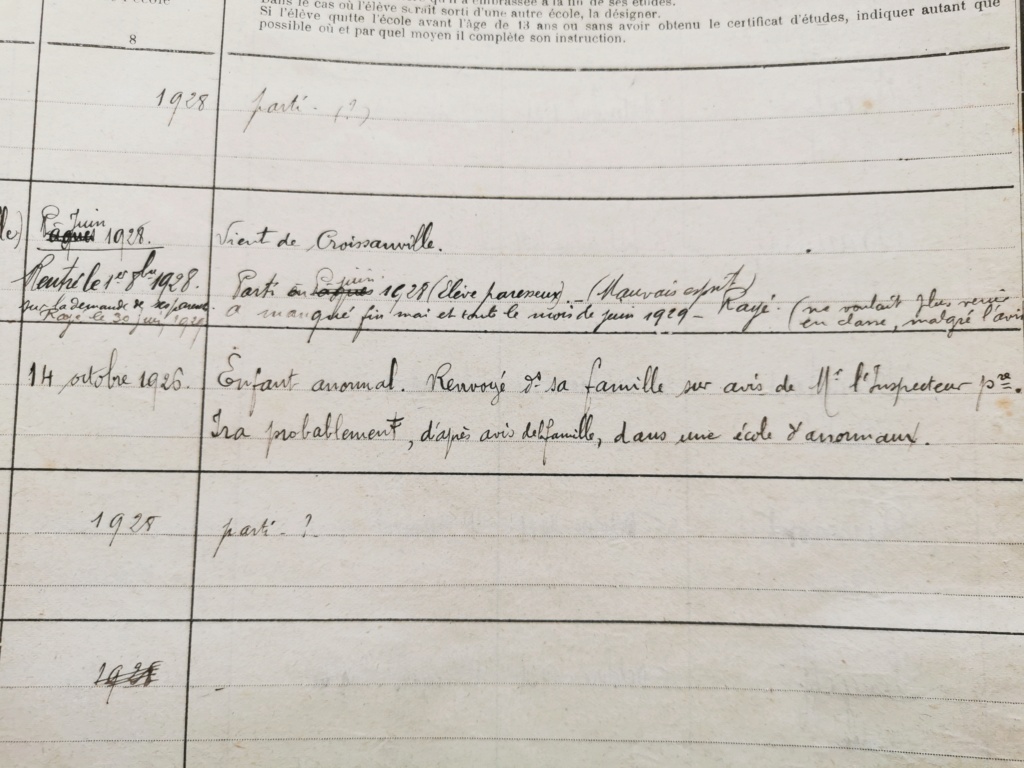 l'école
qu'il a embrassée à la fin de ses études.
Dans le cas où l'élève serait sorti d'une autre école, la désigner.
Si l'élève quitte l'école avant l'âge de 13 ans ou sans avoir obtenu le certificat d'études, indiquer autant que
possible où et par quel moyen il complète son instruction.
8
1928 parti. (?)
Juin
Pâques 1928. Vient de Croissanville.
Rentré le 1er 8bre 1928.
juin
Parti à Pâques 1928 (Elève paresseux). - (Mauvais esprit)
sur la demande de ses parents
Rayé le 30 juin 1929
a manqué fin mai et tout le mois de juin 1929 - Rayé. (ne voulait plus venir
en classe, malgré l'avis
14 octobre 1926. Enfant anormal. Renvoyé ds sa famille sur avis de Mr l'Inspecteur pre.
Ira probablement, d'après avis de la famille, dans une école d'anormaux.
1928 parti - ?
1928 -